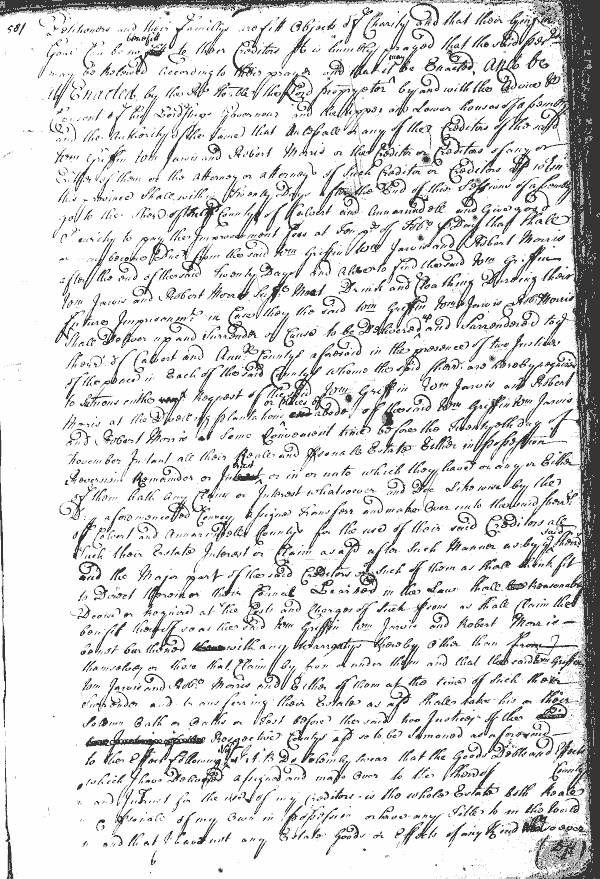 581
Petitioners and their Familys are fitt Objects of Charity and that their
Gaol Can be no benefitt to their Creditors It is humbly prayed that the said
may be Releived According to their prayer and that it may be Enacted, And be
it Enacted, by the Rt Honble the Lord proprietor by and with the Advice &
Consent of his Lordships Governour and the upper and Lower houses of Assembly
and the Authority of the same that Untill all or any of the Creditors of the said
Wm Griffin Wm Jarvis and Robert Morris or the Creditor or Creditors of any or
Either of them or the Attorney or attorneys of such Creditor or Creditors
this province Shall within Twenty Days after the End of this Sessions of assembly
to the Sherifs of the Countys of Calvert and Annarundell and Give good
Security to pay the Imprisonment Fees at Ten pds of Tobo p Day that shall
become Due from the said Wm Griffin Wm Jarvis and Robert Morris
after the end of the said Twenty Days and also to find the said Wm Griffin
Wm Jarvis and Robert Morris Suffic Meat Drink and Cloathing During their
future Imprisonment in Case they the said Wm Griffin Wm Jarvis Robt Morris
Shall Deliver up and Surrender or Cause to be Delivered and Surrendered to
Sherifs of Calvert and Ann Countys aforesaid in the presence of two Justices
of the peace in Each of the said Countys whome the said Sherifs are hereby required
to Summons on the Request of the said Wm Griffin Wm Jarvis and Robert
Morris at the Dwelling plantations or places of abode of the said Wm Griffin Wm Jarvis
and Robert Morris at Some Convenient time before the Twentyeth day of
November Instant all their Reale and Personale Estate Either in possession
Reversion Remainder or Trust or in or unto which they have or any or Either
of them hath any Claim or Interest whatsoever and Doe Likewise by the
aforementioned Convey assigne Transferr and make Over unto the said Sherifs
of Calvert and Annarundell Countys for the use of their said Creditors all
Such their Estate Interest or Claim as afsd after Such Manner as by the said Sherifs
and the Major part of the said Creditors or Such of them as shall think fit
to Direct therein or their Councel Learned in the Law shall be Reasonably
Devised or Required at the Costs and Charges of Such persons as shall Claim the
benefit thereof so as the said Wm Griffin Wm Jarvis and Robert Morris
be not burthened with any Warrantys thereby Other than from
themselves or those that Claim by from or under them and that the said Wm Griffin
Wm Jarvis and Robt Morris and Either of them at the time of Such their
Surrender and transferring their Estate as afsd shall take his or their
Solemn Oath or Oaths or Test before the said two Justices of the
Respective Countys afsd so to be sumoned as aforesaid
to the Effect Following Vizt I A B Do Solemnly swear that the Goods Debts and Effects
which I have Delivered assigned and made Over to the Sherif of County
and Interest for the use of my Creditors is the whole Estate both Reale
Personale of my Own in possession or have any Title to in the World
and that I have not any Estate Goods or Effects of any Kind whatsoever